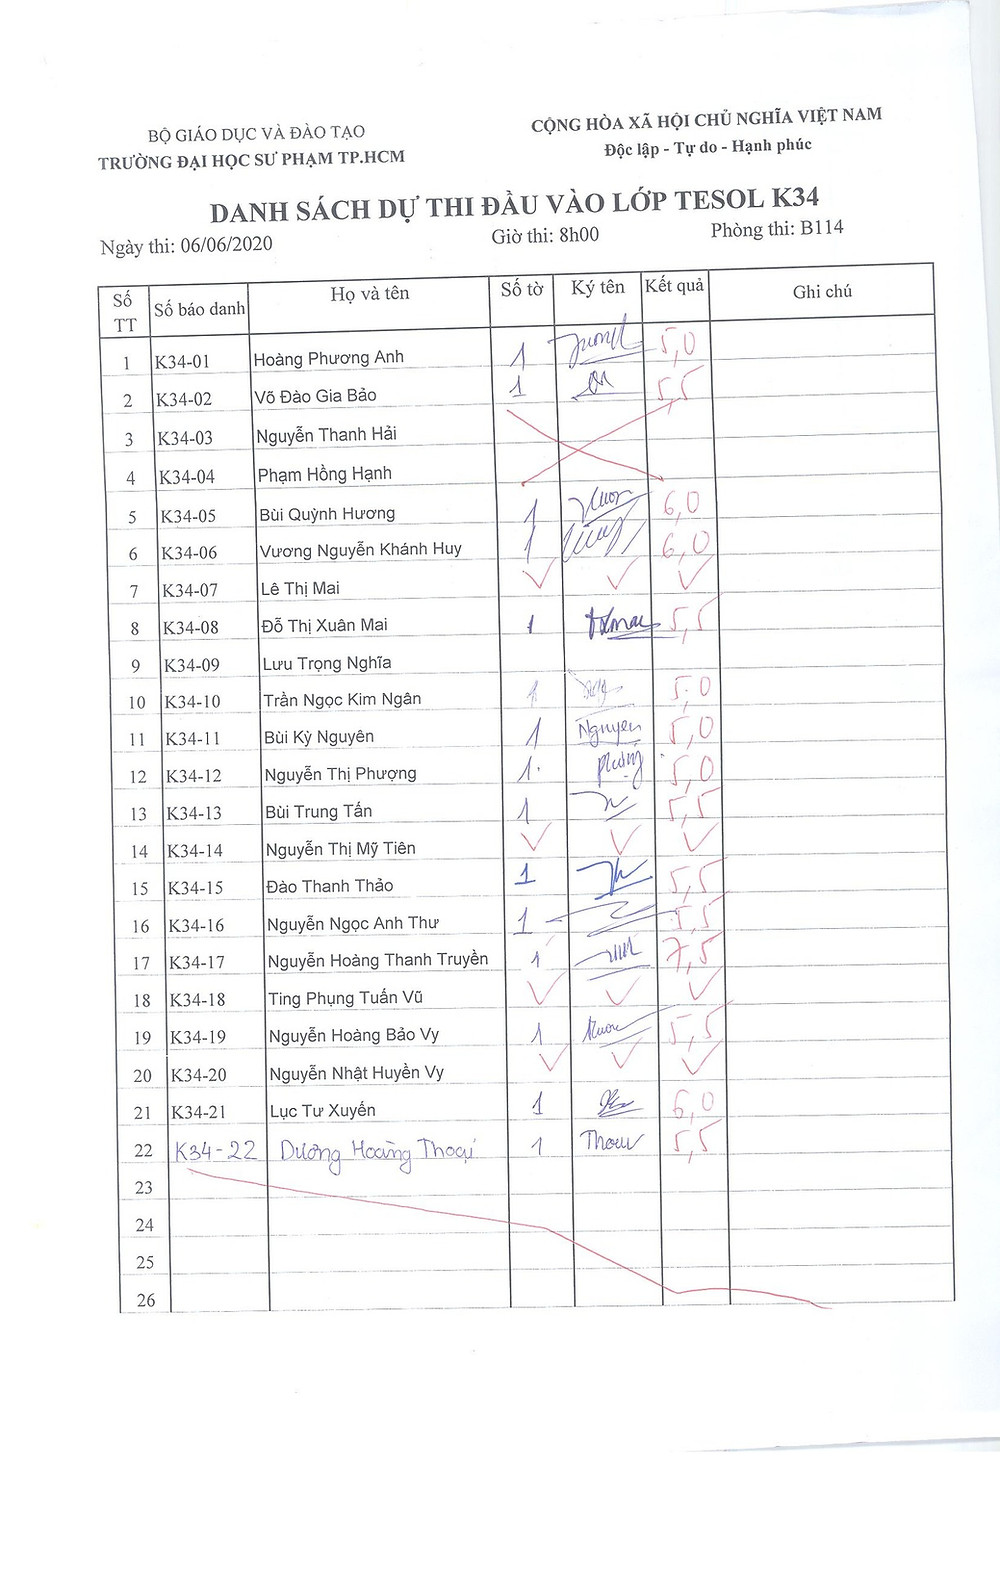 BỘ GIÁO DỤC VÀ ĐÀO TẠO
TRƯỜNG ĐẠI HỌC SƯ PHẠM TP.HCM
CỘNG HÒA XÃ HỘI CHỦ NGHĨA VIỆT NAM
Độc lập - Tự do - Hạnh phúc
DANH SÁCH DỰ THI ĐẦU VÀO LỚP TESOL K34
Ngày thi: 06/06/2020 Giờ thi: 8h00 Phòng thi: B114
Số TT Số báo danh Họ và tên Số tờ Ký tên Kết quả Ghi chú
1 K34-01 Hoàng Phương Anh 1 5,0
2 K34-02 Võ Đào Gia Bảo 1 5,5
3 K34-03 Nguyễn Thanh Hải
4 K34-04 Phạm Hồng Hạnh
5 K34-05 Bùi Quỳnh Hương 1 6,0
6 K34-06 Vương Nguyễn Khánh Huy 1 6,0
7 K34-07 Lê Thị Mai
8 K34-08 Đỗ Thị Xuân Mai 1 5,5
9 K34-09 Lưu Trọng Nghĩa
10 K34-10 Trần Ngọc Kim Ngân 1 5,0
11 K34-11 Bùi Kỳ Nguyên 1 Nguyen 5,0
12 K34-12 Nguyễn Thị Phượng 1 Phượng 5,0
13 K34-13 Bùi Trung Tấn 1 5,5
14 K34-14 Nguyễn Thị Mỹ Tiên
15 K34-15 Đào Thanh Thảo 1 5,5
16 K34-16 Nguyễn Ngọc Anh Thư 1 5,5
17 K34-17 Nguyễn Hoàng Thanh Truyền 1 7,5
18 K34-18 Ting Phụng Tuấn Vũ
19 K34-19 Nguyễn Hoàng Bảo Vy 1 5,5
20 K34-20 Nguyễn Nhật Huyền Vy
21 K34-21 Lục Tư Xuyến 1 6,0
22 K34-22 Dương Hoàng Thoại 1 5,5
23
24
25
26